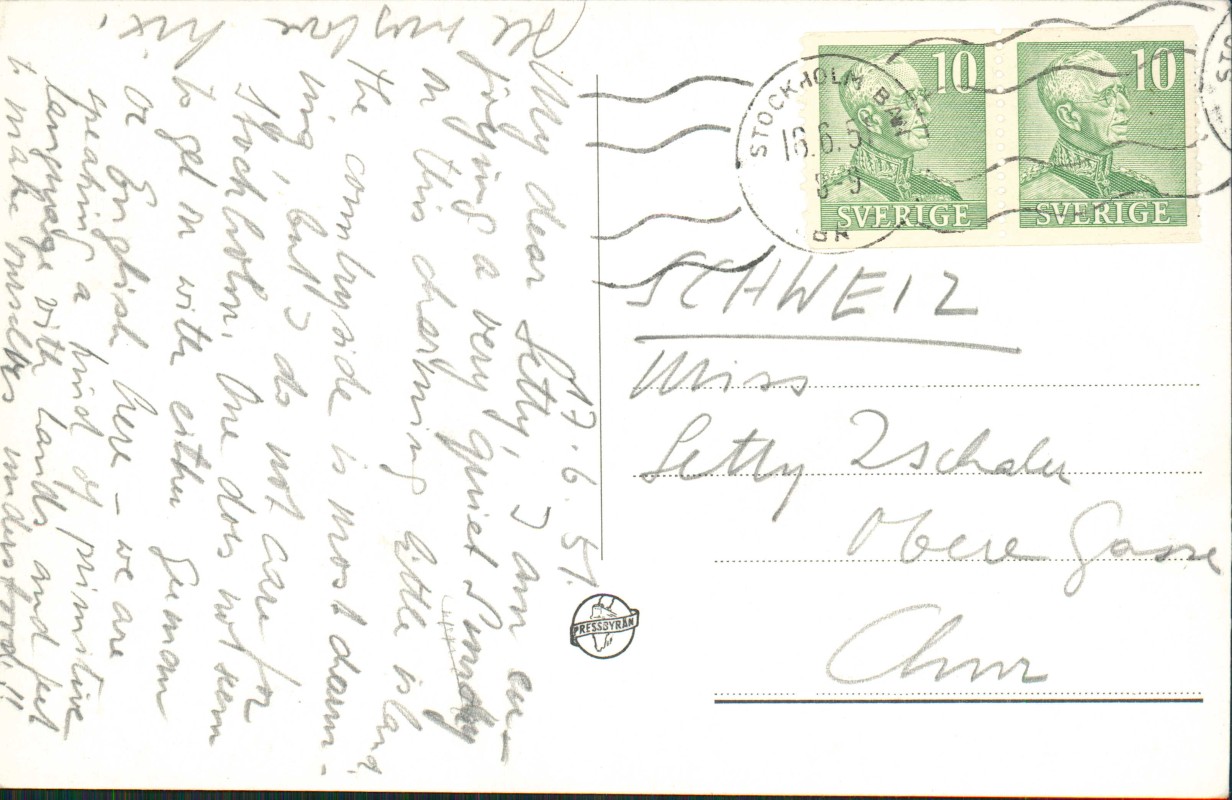 17. 6. 51.
My dear Letty, I am en-
joying a very quiet Sunday
on this charming little island,
the countryside is most charm-
ing, but I do not care for
Stockholm. One does not seem
to get on with either German
or English here – we are
speaking a kind of primitive
language with hands and feet
to make ourselves understood!!
All
my love
STOCKHOLM BAN
16.6.51
8-9
10
SVERIGE
10
SVERIGE
SCHWEIZ
Miss
Letty Zschaler
Obere Gasse
Chur
PRESSBYRÅN